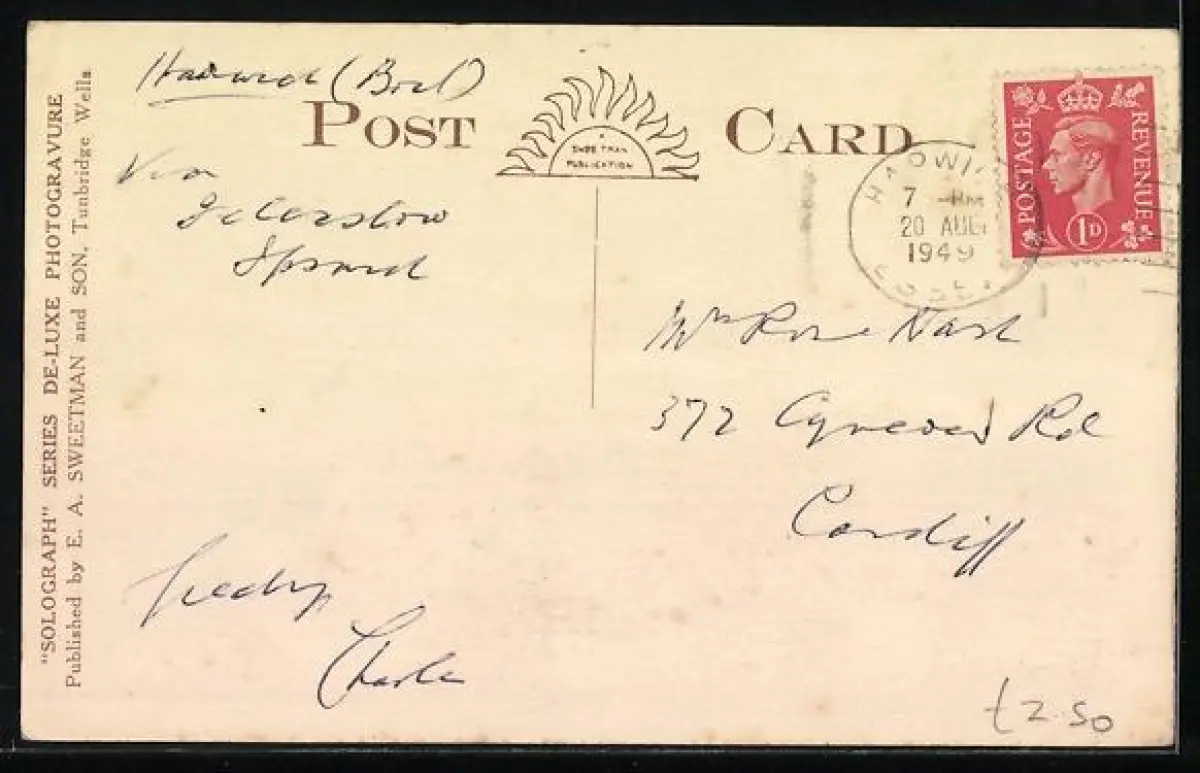 "SOLOGRAPH" SERIES DE-LUXE PHOTOGRAVURE
Published by E. A. SWEETMAN and SON, Tunbridge Wells
POST CARD
PUBLICATION
POSTAGE REVENUE
1D
7
20 AUG
1949
Harwich (Boat)
Via
Felixstowe
Mrs Rose Nash
372 Rd
Cardiff
Charlie
£2.50